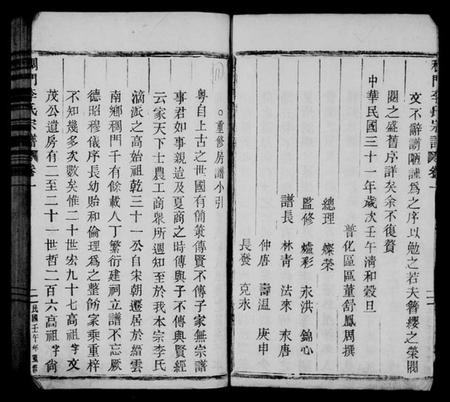 稠門李氏宗譜
卷一
文不辭謭陋謹為之序以勉之若夫簪纓之榮閥
閱之盛舊序詳矣余不復贅
中華民國三十一年歲次壬午清和穀旦
普化區區董舒鳳周撰
總理 燦榮
監修 爐彩 永洪 錦心
譜長 林青 法來 永唐
仲唐 壽溫 庚申
長發 克永
○重修房譜小引
粵自上古之世國有前業傳賢不傳子家無宗譜
事君如事親追及夏商之時傳與子不傳與賢經
云家天下士農工商眾所週知至於我本宗李氏
溯派之高始祖乾三十一公自宋朝遷居於縉雲
南鄉稠門千有餘載人丁繁衍建祠立譜不忘厥
德昭穆儀序長幼貽和倫理為之整飭家乘重梓
不知幾多次數矣惟二十世宏九十七高祖字文
茂公遺房有二至二十一世哲二百六高祖字喬
稠門李氏宗譜
卷一
民國壬午年重修